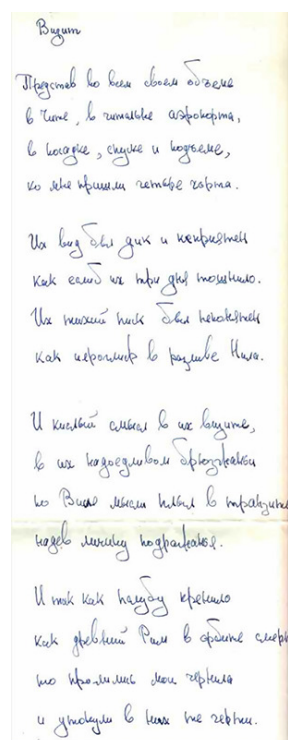 Визит
Представ во всем своем объеме
в Чите, в читальне аэропорта,
в посадке, спуске и подъеме,
ко мне пришли четыре чорта.
Их вид был дик и неприятен
как еслиб их три дня тошнило.
Их тихий писк был непонятен
как иероглиф в разливе Нила.
И кислый смысл в их визите,
в их надоедливом брюзжаньи
по Виле мысли плыл в транзите
надев личину подражанья.
И так как палубу кренило
как древний Рим в орбите смер
то пролились мои чернила
и утонули в них те черти.